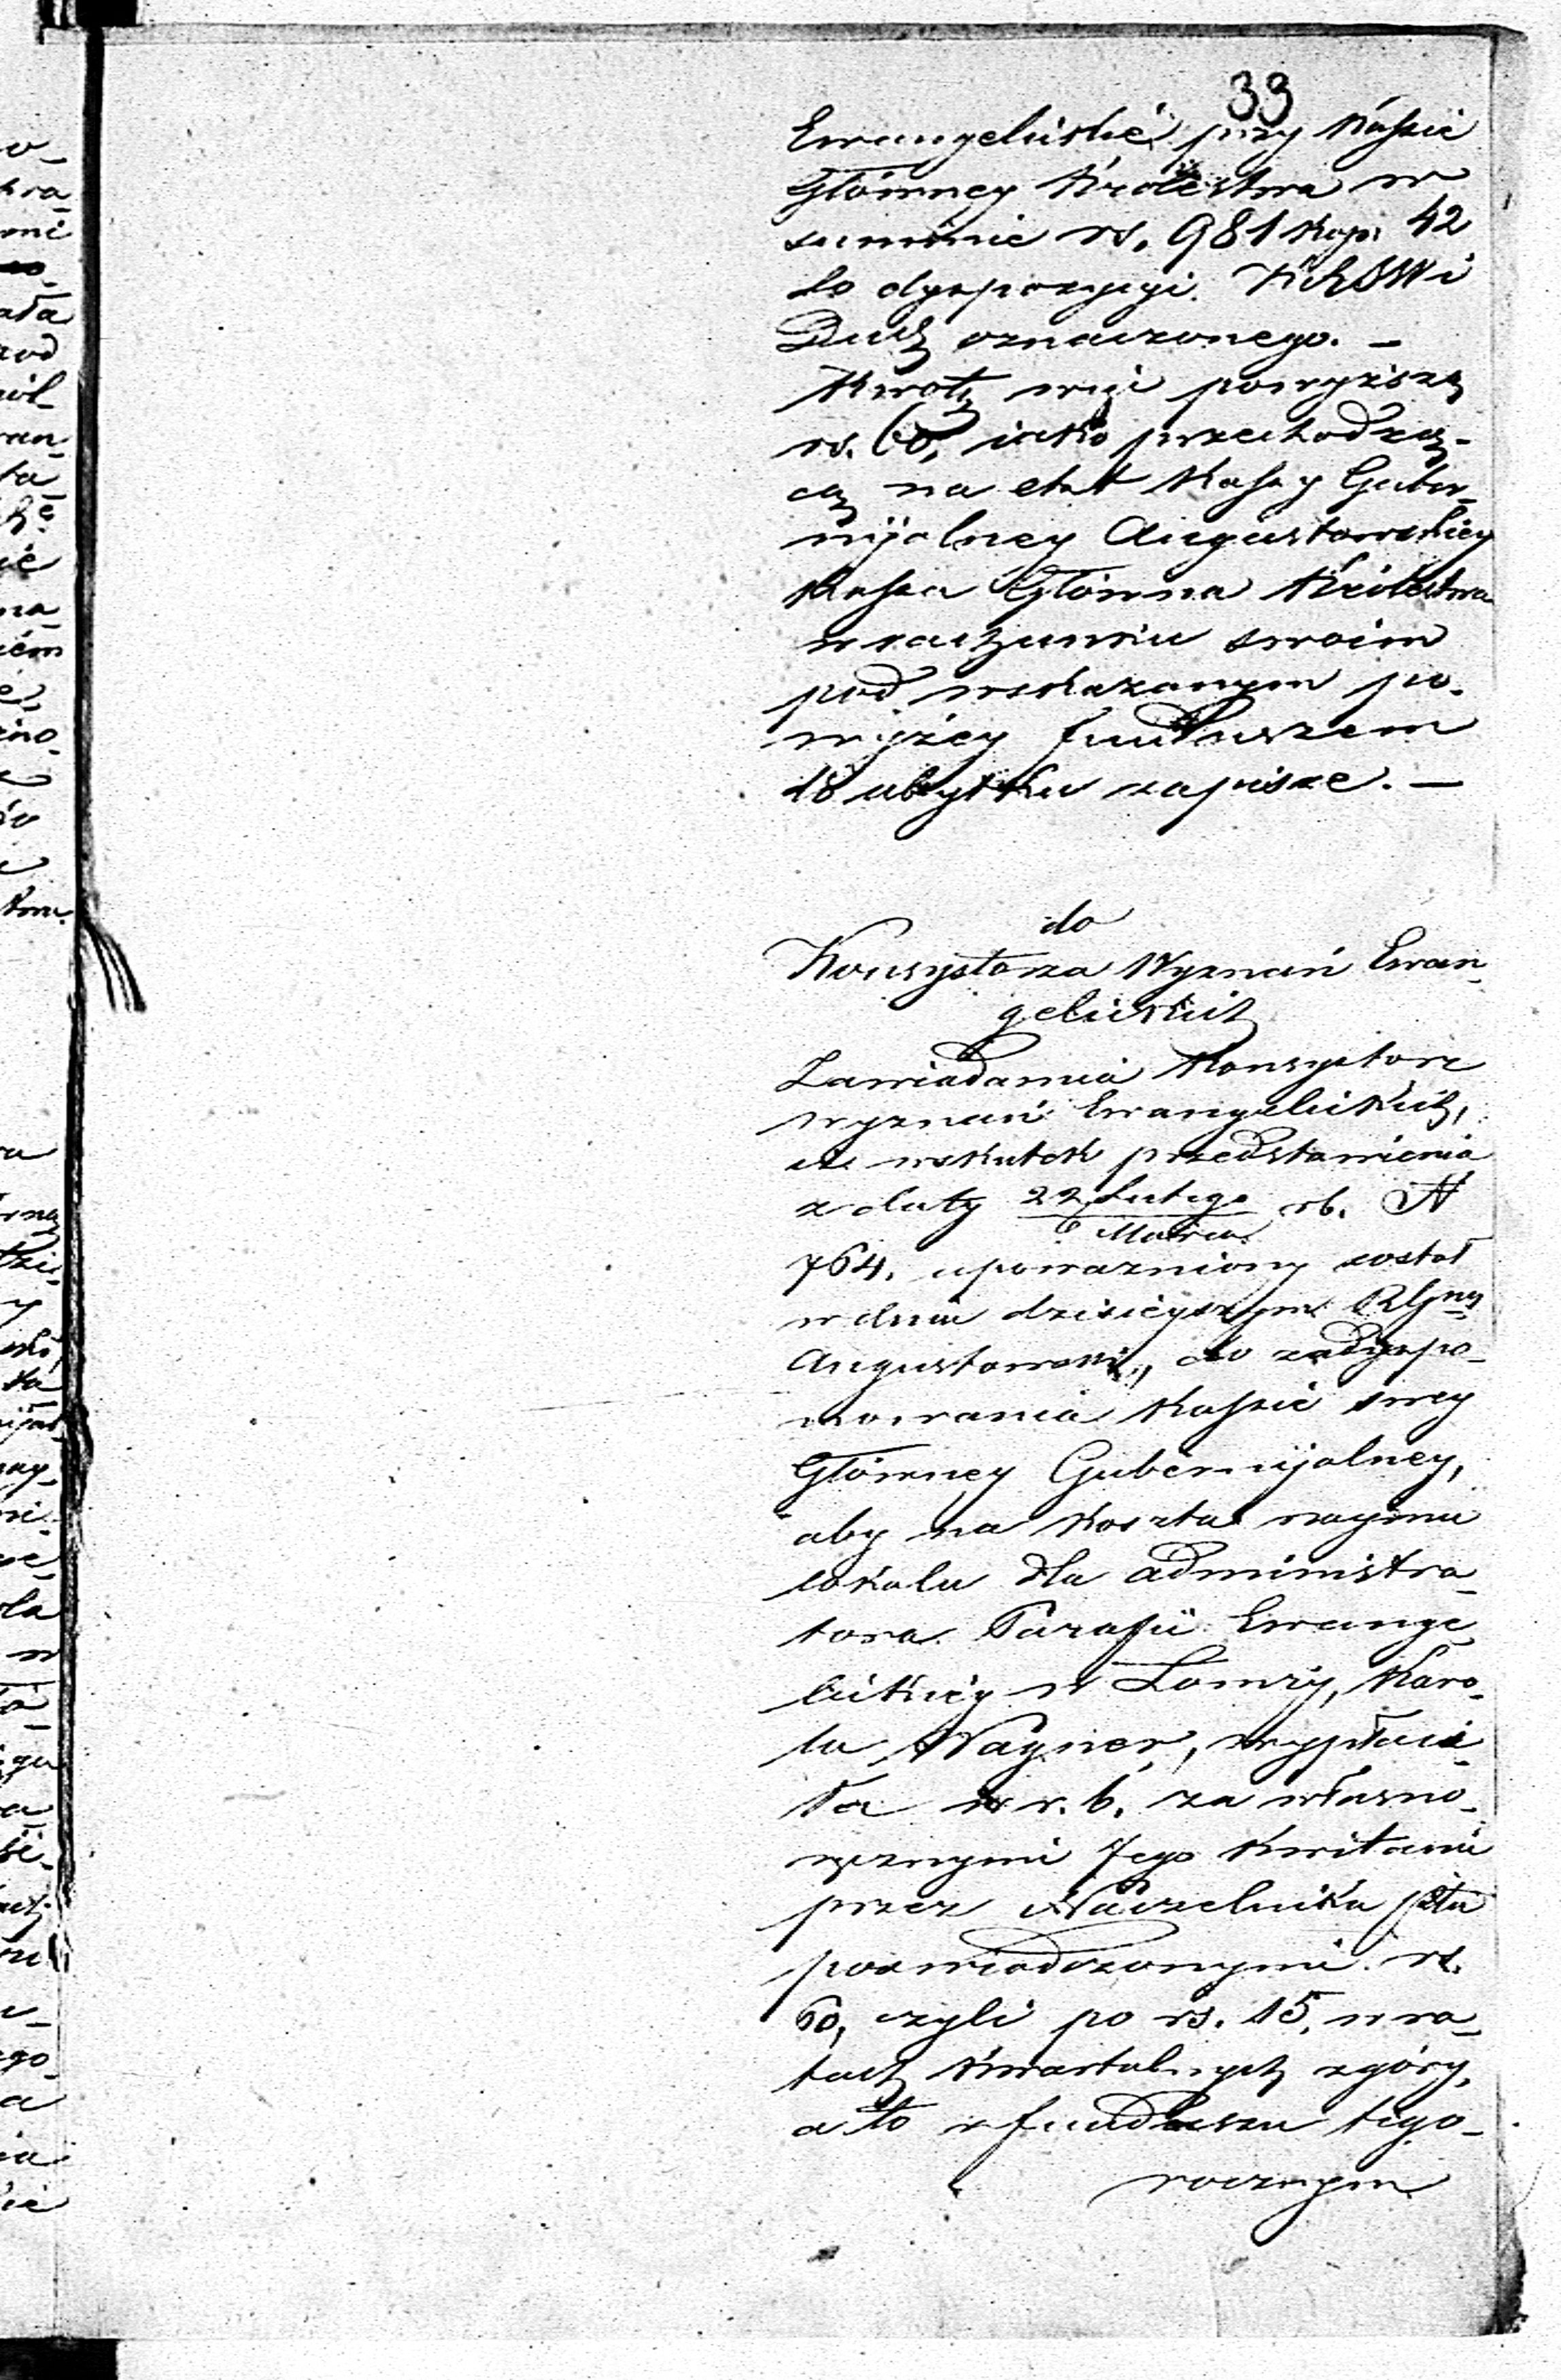 33
Ewangelickie przy Kassie
Główney Królestwa w
summie rs. 981 kop. 42
do dyspozycyi KRSW i
Duch oznaczonego. —
Kwotę więc powyższą
rs. 60, iako przechodzą-
cą na etat Kassy Guber-
nijalney Augustowskiey
Kassa Główna Królestwa
w rachunku swoim
pod wskazanym po-
wyżey funduszem
do ubytku zapisze. —
do
Konsystorza Wyznań Ewan-
gelickich
Zawiadamia Konsystorz
wyznań Ewangelickich,
iż wskutek przedstawienia
z daty 22 Lutego rb. N
6 Marca
764, upoważniony został
w dniu dzisieyszym RGny
Augustowski, do zadyspo-
nowania Kassie swey
Główney Gubernijalney,
aby na koszta naymu
lokalu dla administra-
tora Parafii Ewange-
lickiey w Łomży, Karo-
la Wagner, wypłaci-
ła w r. b. za własno-
ręcznymi Jego kwitami
przez Naczelnika pttu
poswiadczonymi rs.
60, czyli po rs. 15, w ra-
tach kwartalnych zgóry,
a to z funduszu tego-
rocznym